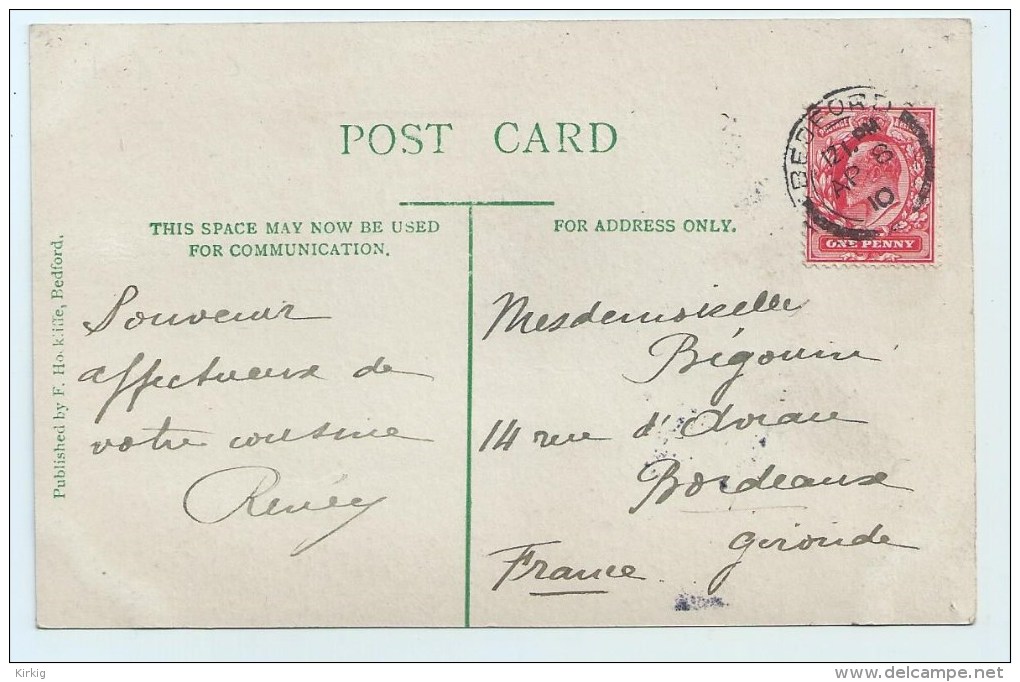 POST CARD
THIS SPACE MAY NOW BE USED
FOR COMMUNICATION.
FOR ADDRESS ONLY.
Published by F. Hockliffe, Bedford.
Souvenir
affectueux de
votre cousine
Renée
Mesdemoiselle
Bégouin
14 rue d'
Bordeaux
Gironde
France
BEDFORD
12 PM
AP 8
10
ONE PENNY
Kirkig
www.delcampe.net